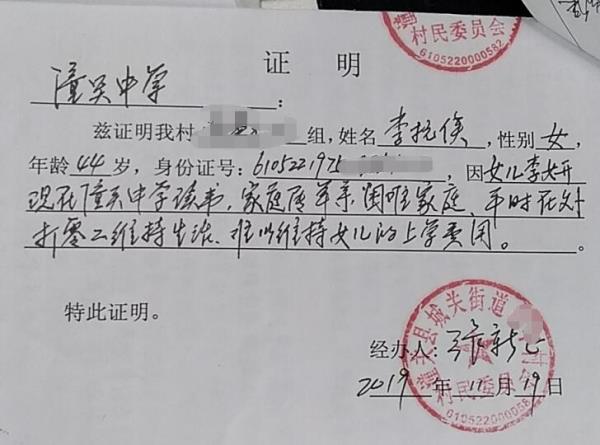 村民委员会
6105220000582
证明
潼关中学:
兹证明我村 组,姓名李抗侠,性别女,
年龄44岁,身份证号:6105221975 ,因女儿李妍
现在潼关中学读书,家庭属单亲困难家庭,平时在外
打零工维持生活,难以维持女儿的上学费用。
特此证明。
潼关县城关街道 村
经办人:张新
2019年11月19日
村民委员会
6105220000582